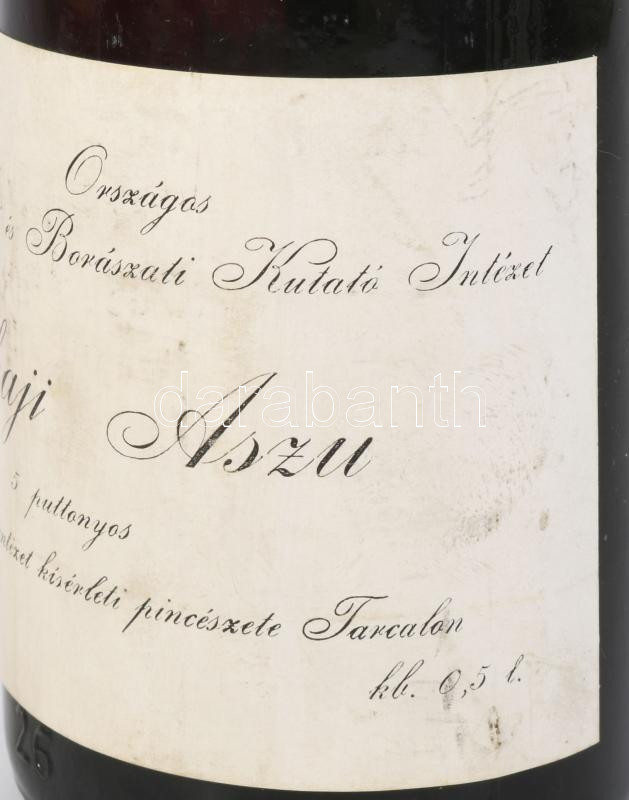 Országos
és Borászati Kutató Intézet
aji Aszu
5 puttonyos
ntézet kísérleti pincészete Tarcalon
kb. 0,5 l.
darabanth
25